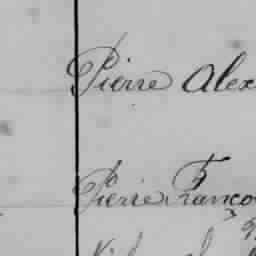 Pierre Alex
Pierre Franço